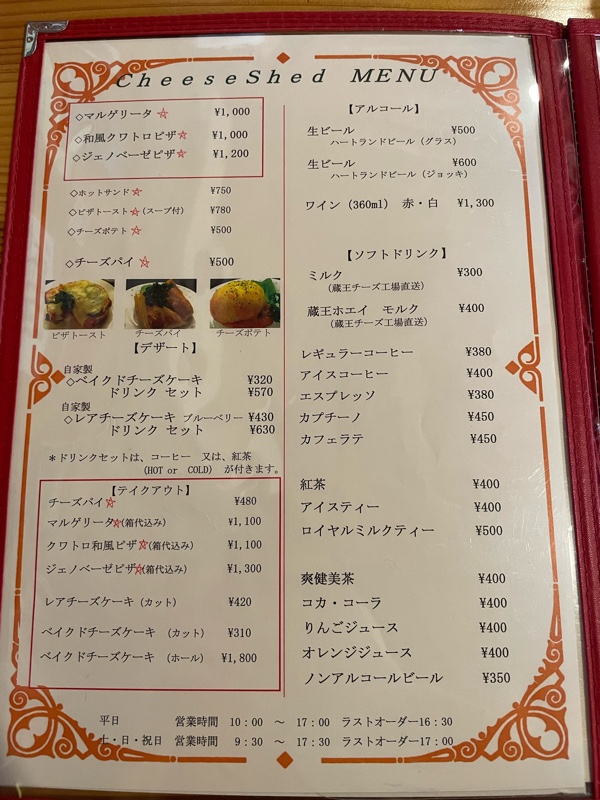 CheeseShed MENU
◇マルゲリータ☆ ¥1,000
◇和風クワトロピザ☆ ¥1,000
◇ジェノベーゼピザ☆ ¥1,200
◇ホットサンド☆ ¥750
◇ピザトースト☆(スープ付) ¥780
◇チーズポテト☆ ¥500
◇チーズパイ☆ ¥500
ピザトースト チーズパイ チーズポテト
【デザート】
自家製
◇ベイクドチーズケーキ ¥320
ドリンク セット ¥570
自家製
◇レアチーズケーキ ブルーベリー ¥430
ドリンク セット ¥630
＊ドリンクセットは、コーヒー 又は、紅茶
(HOT or COLD) が付きます。
【テイクアウト】
チーズパイ☆ ¥480
マルゲリータ☆(箱代込み) ¥1,100
クワトロ和風ピザ☆(箱代込み) ¥1,100
ジェノベーゼピザ☆(箱代込み) ¥1,300
レアチーズケーキ (カット) ¥420
ベイクドチーズケーキ (カット) ¥310
ベイクドチーズケーキ (ホール) ¥1,800
【アルコール】
生ビール ¥500
ハートランドビール (グラス)
生ビール ¥600
ハートランドビール (ジョッキ)
ワイン (360ml) 赤・白 ¥1,300
【ソフトドリンク】
ミルク ¥300
(蔵王チーズ工場直送)
蔵王ホエイ モルク ¥400
(蔵王チーズ工場直送)
レギュラーコーヒー ¥380
アイスコーヒー ¥400
エスプレッソ ¥380
カプチーノ ¥450
カフェラテ ¥450
紅茶 ¥400
アイスティー ¥400
ロイヤルミルクティー ¥500
爽健美茶 ¥400
コカ・コーラ ¥400
りんごジュース ¥400
オレンジジュース ¥400
ノンアルコールビール ¥350
平日 営業時間 10：00 〜 17：00 ラストオーダー16：30
土・日・祝日 営業時間 9：30 〜 17：30 ラストオーダー17：00